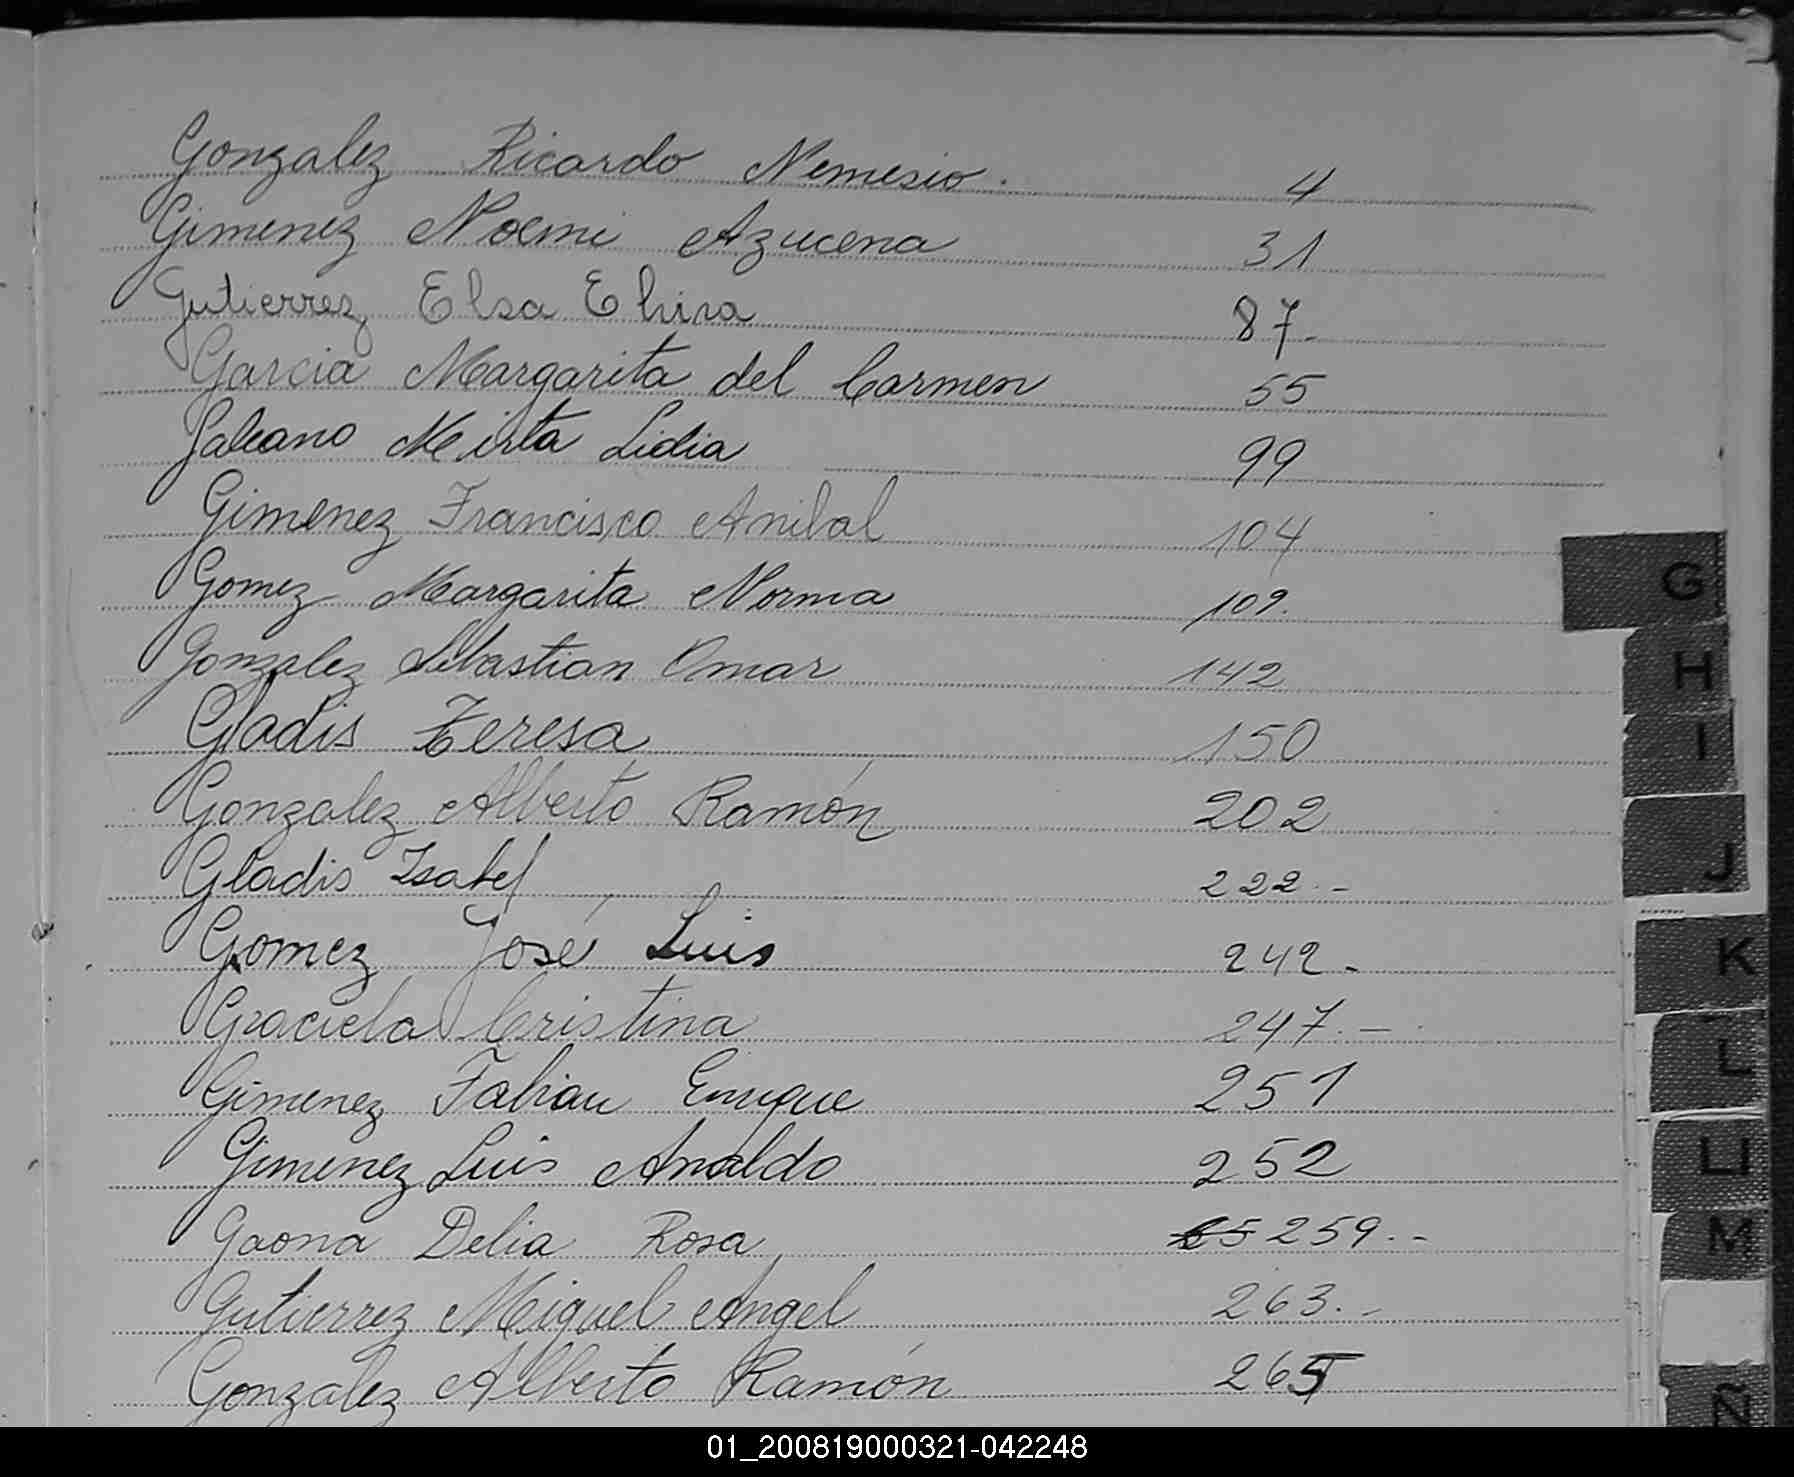 Gonzalez Ricardo Nemesio. 4
Gimenez Noemi Azucena 31
Gutierrez Elsa Elvira 87-
Garcia Margarita del Carmen 55
Galeano Mirta Lidia 99
Gimenez Francisco Anibal 104
Gomez Margarita Norma 109.
Gonzalez Sebastian Omar 142
Gladis Teresa 150
Gonzalez Alberto Ramón 202
Gladis Isabel 222.-
Gomez José Luis 242-
Graciela Cristina 247.-
Gimenez Fabian Enrique 251
Gimenez Luis Arnaldo 252
Gaona Delia Rosa 259.-
Gutierrez Miguel Angel 263.-
Gonzalez Alberto Ramón 265
G
H
I
J
K
L
Ll
M
Ñ
01_200819000321-042248